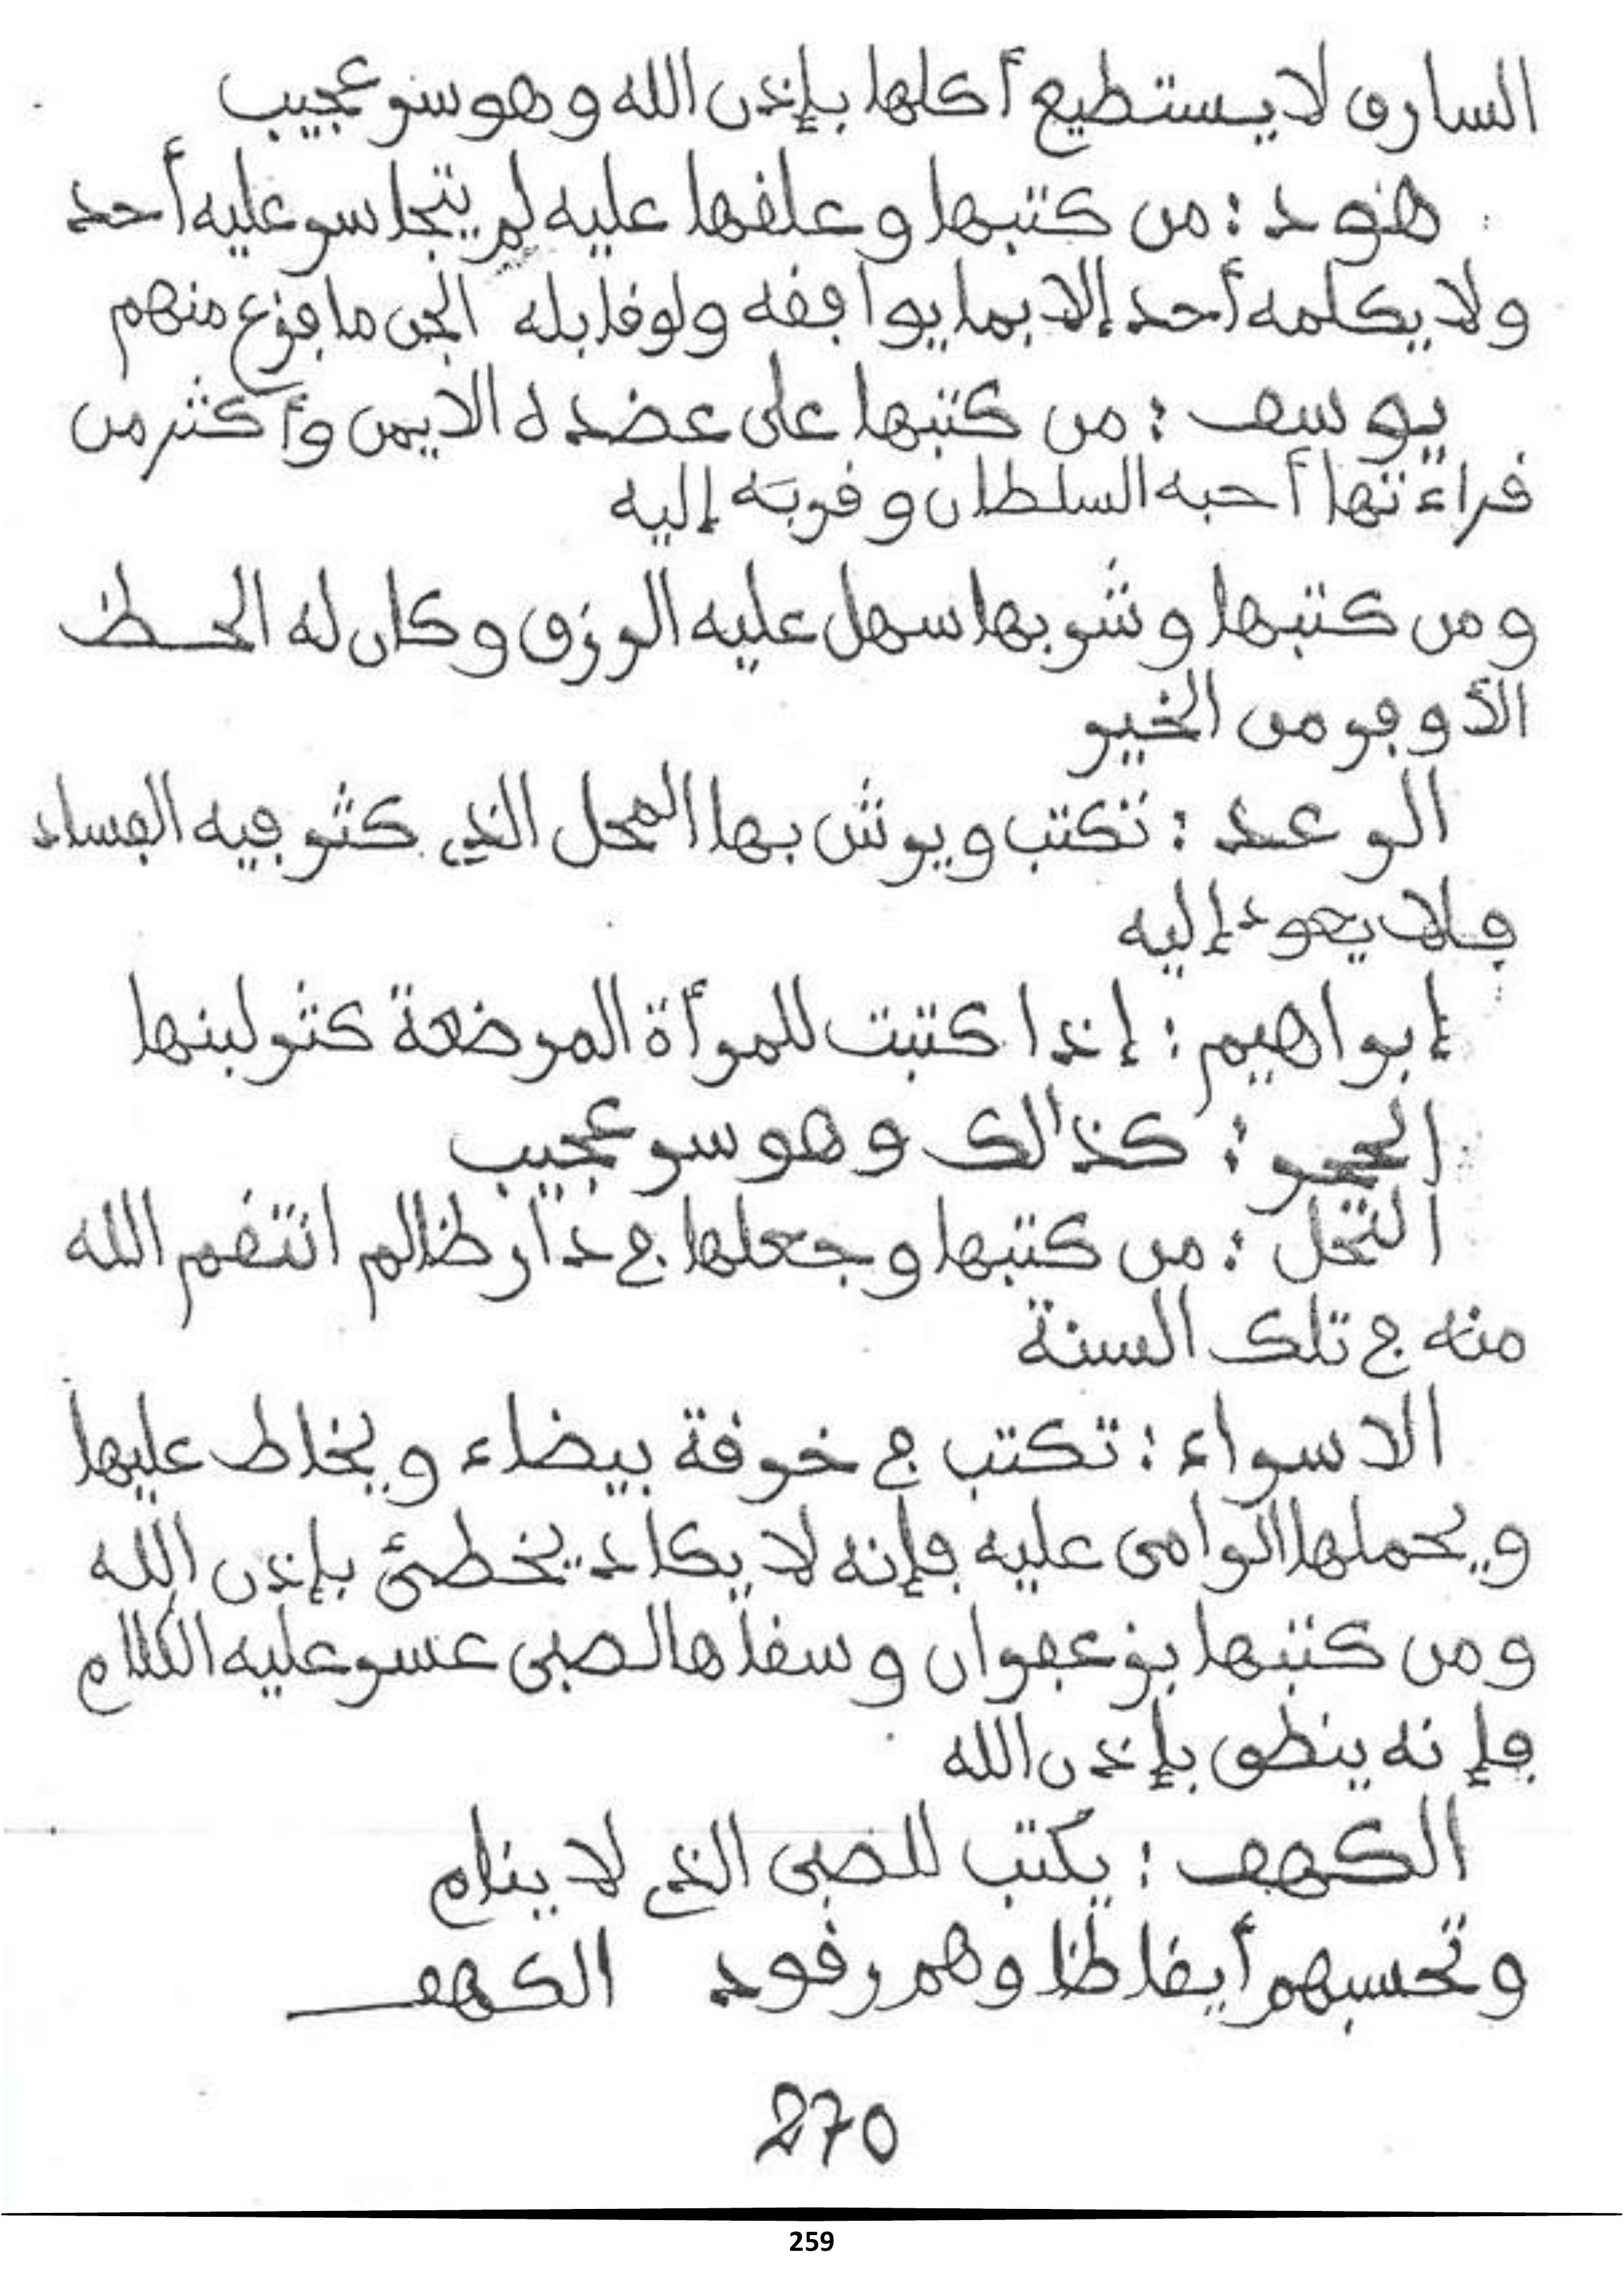 السارق لا يستطيع أكلها بإذن الله وهو سر عجيب
هود : من كتبها وعلقها عليه لم يتجاسر عليه أحد
ولا يكلمه أحد إلا بما يوافقه ولو قابله الجن ما فزع منهم
يوسف : من كتبها على عضده الايمن وأكثر من
قراءتها أحبه السلطان وقربَه إليه
ومن كتبها وشربها سهل عليه الرزق وكان له الحظ
الأوفر من الخير
الرعد : تكتب ويرش بها المحل الذي كثر فيه الفساد
فلا يعود إليه
إبراهيم : إذا كتبت للمرأة المرضعة كثر لبنها
الحجر : كذالك وهو سر عجيب
النحل : من كتبها وجعلها في دار ظالم انتقم الله
منه في تلك السنة
الاسراء : تكتب في خرقة بيضاء ويخاط عليها
ويحملها الرامى عليه فإنه لا يكاد يخطئ بإذن الله
ومن كتبها بزعفران وسقاها لصبى عسر عليه الكلام
فإنه ينطق بإذن الله
الكهف : يكتب للصبى الذي لا ينام
وتحسبهم أيقاظا وهم رقود الكهف
270
259